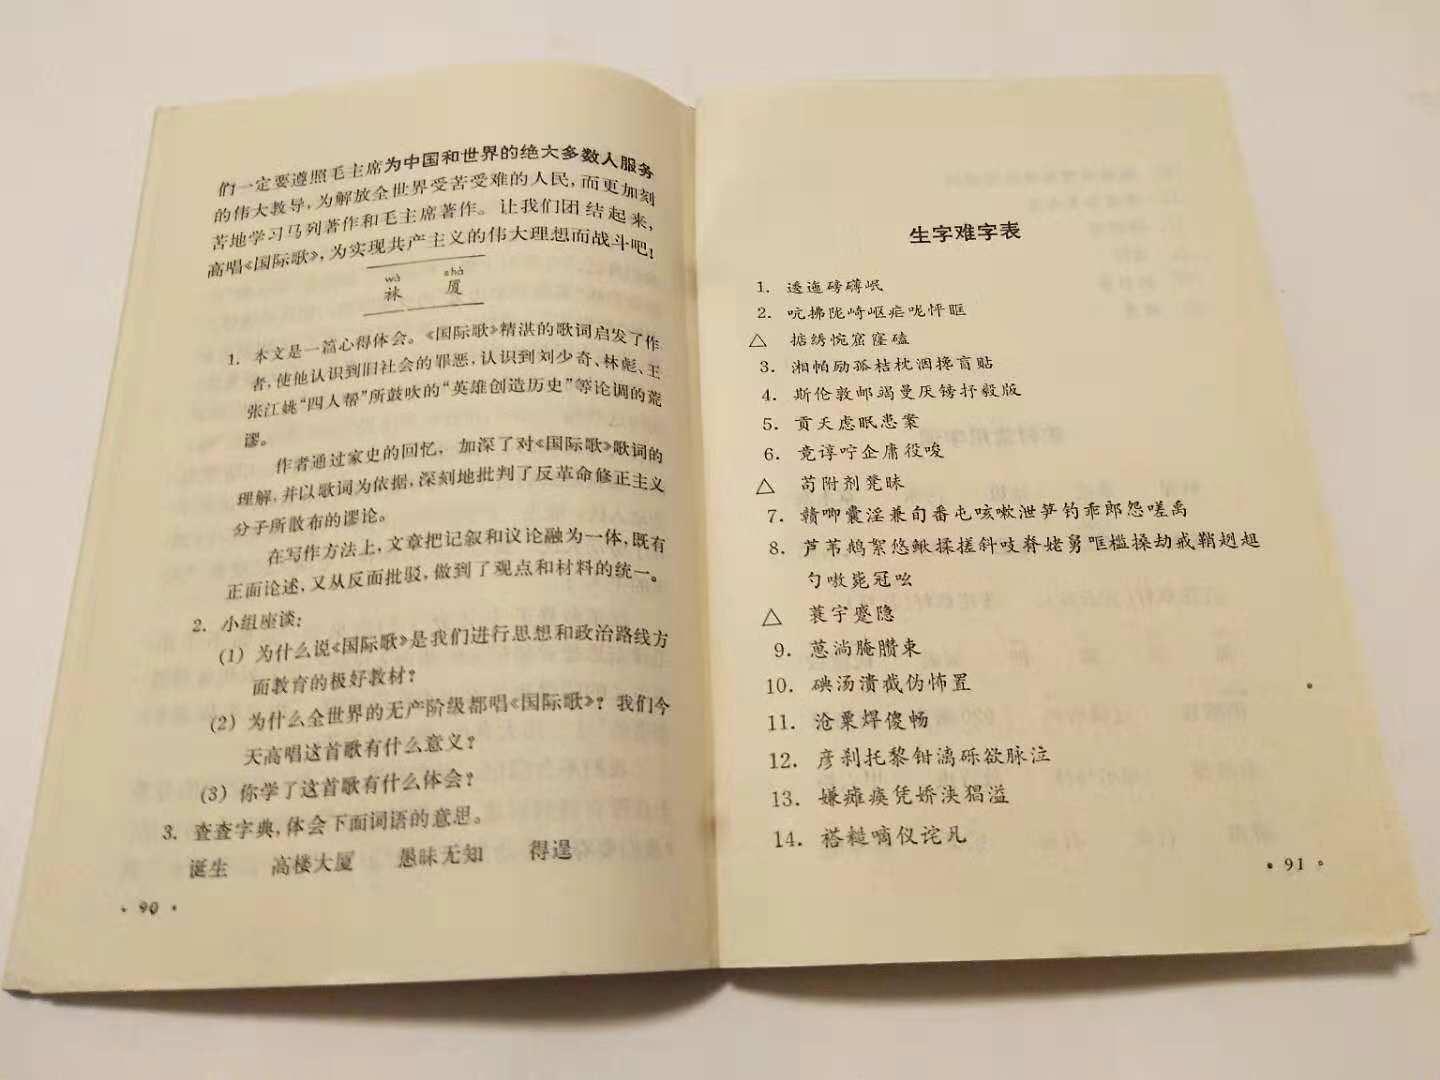 们一定要遵照毛主席为中国和世界的绝大多数人服务
的伟大教导，为解放全世界受苦受难的人民，而更加刻
苦地学习马列著作和毛主席著作。让我们团结起来，
高唱《国际歌》，为实现共产主义的伟大理想而战斗吧！
wà shà
袜 厦
1. 本文是一篇心得体会。《国际歌》精湛的歌词启发了作
者，使他认识到旧社会的罪恶，认识到刘少奇、林彪、王
张江姚“四人帮”所鼓吹的“英雄创造历史”等论调的荒
谬。
作者通过家史的回忆，加深了对《国际歌》歌词的
理解，并以歌词为依据，深刻地批判了反革命修正主义
分子所散布的谬论。
在写作方法上，文章把记叙和议论融为一体，既有
正面论述，又从反面批驳，做到了观点和材料的统一。
2. 小组座谈：
(1) 为什么说《国际歌》是我们进行思想和政治路线方
面教育的极好教材？
(2) 为什么全世界的无产阶级都唱《国际歌》？我们今
天高唱这首歌有什么意义？
(3) 你学了这首歌有什么体会？
3. 查查字典，体会下面词语的意思。
诞生 高楼大厦 愚昧无知 得逞
· 90 ·
生字难字表
1. 逶迤磅礴岷
2. 吭拂陇崎岖疟咙怦眶
△ 掂绣惋窟窿磕
3. 湘帕励孤桔枕涸搀盲贴
4. 斯伦敦邮竭曼厌镑抒毅版
5. 贡夭虑眠患案
6. 竞谆咛企庸役唆
△ 苟附剂凳昧
7. 赣唧囊淫兼旬番屯咳嗽泄笋钓乖郎怨嗟禹
8. 芦苇鹅絮悠鳅揉搓斜吱脊姥舅哐槛搡劫戒鞘翘趄
勺嗷毙冠吆
△ 寰宇蹙隐
9. 葱淌腌臜束
10. 碘汤溃截伪怖置
11. 沧粟焊傻畅
12. 彦刹托黎钳漓砾欲脉注
13. 嫌瘫痪凭娇泱猖溢
14. 搭糙嘀仪诧凡
· 91 ·